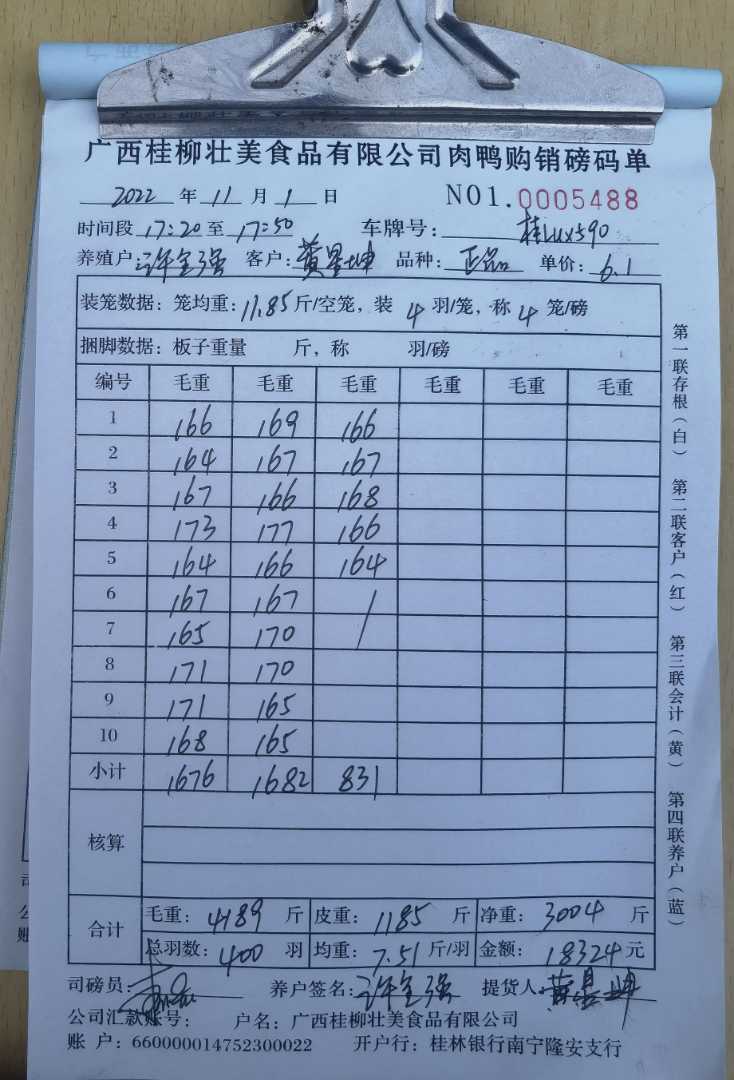 广西桂柳壮美食品有限公司肉鸭购销磅码单
2022 年 11 月 1 日 NO1.0005488
时间段 17:20 至 17:50 车牌号: 桂LUX590
养殖户: 许全强 客户: 黄昱坤 品种: 正品 单价: 6.1
装笼数据: 笼均重: 11.85 斤/空笼, 装 4 羽/笼, 称 4 笼/磅
捆脚数据: 板子重量 斤, 称 羽/磅
编号 毛重 毛重 毛重 毛重 毛重 毛重
1 166 169 166
2 164 167 167
3 167 166 168
4 173 177 166
5 164 166 164
6 167 167 /
7 165 170
8 171 170
9 171 165
10 168 165
小计 1676 1682 831
核算
合计 毛重: 4189 斤 皮重: 1185 斤 净重: 3004 斤
总羽数: 400 羽 均重: 7.51 斤/羽 金额: 18324 元
司磅员: 养户签名: 许全强 提货人: 黄昱坤
公司汇款账号: 户名: 广西桂柳壮美食品有限公司
账 户: 660000014752300022 开户行: 桂林银行南宁隆安支行
第一联存根(白) 第二联客户(红) 第三联会计(黄) 第四联养户(蓝)